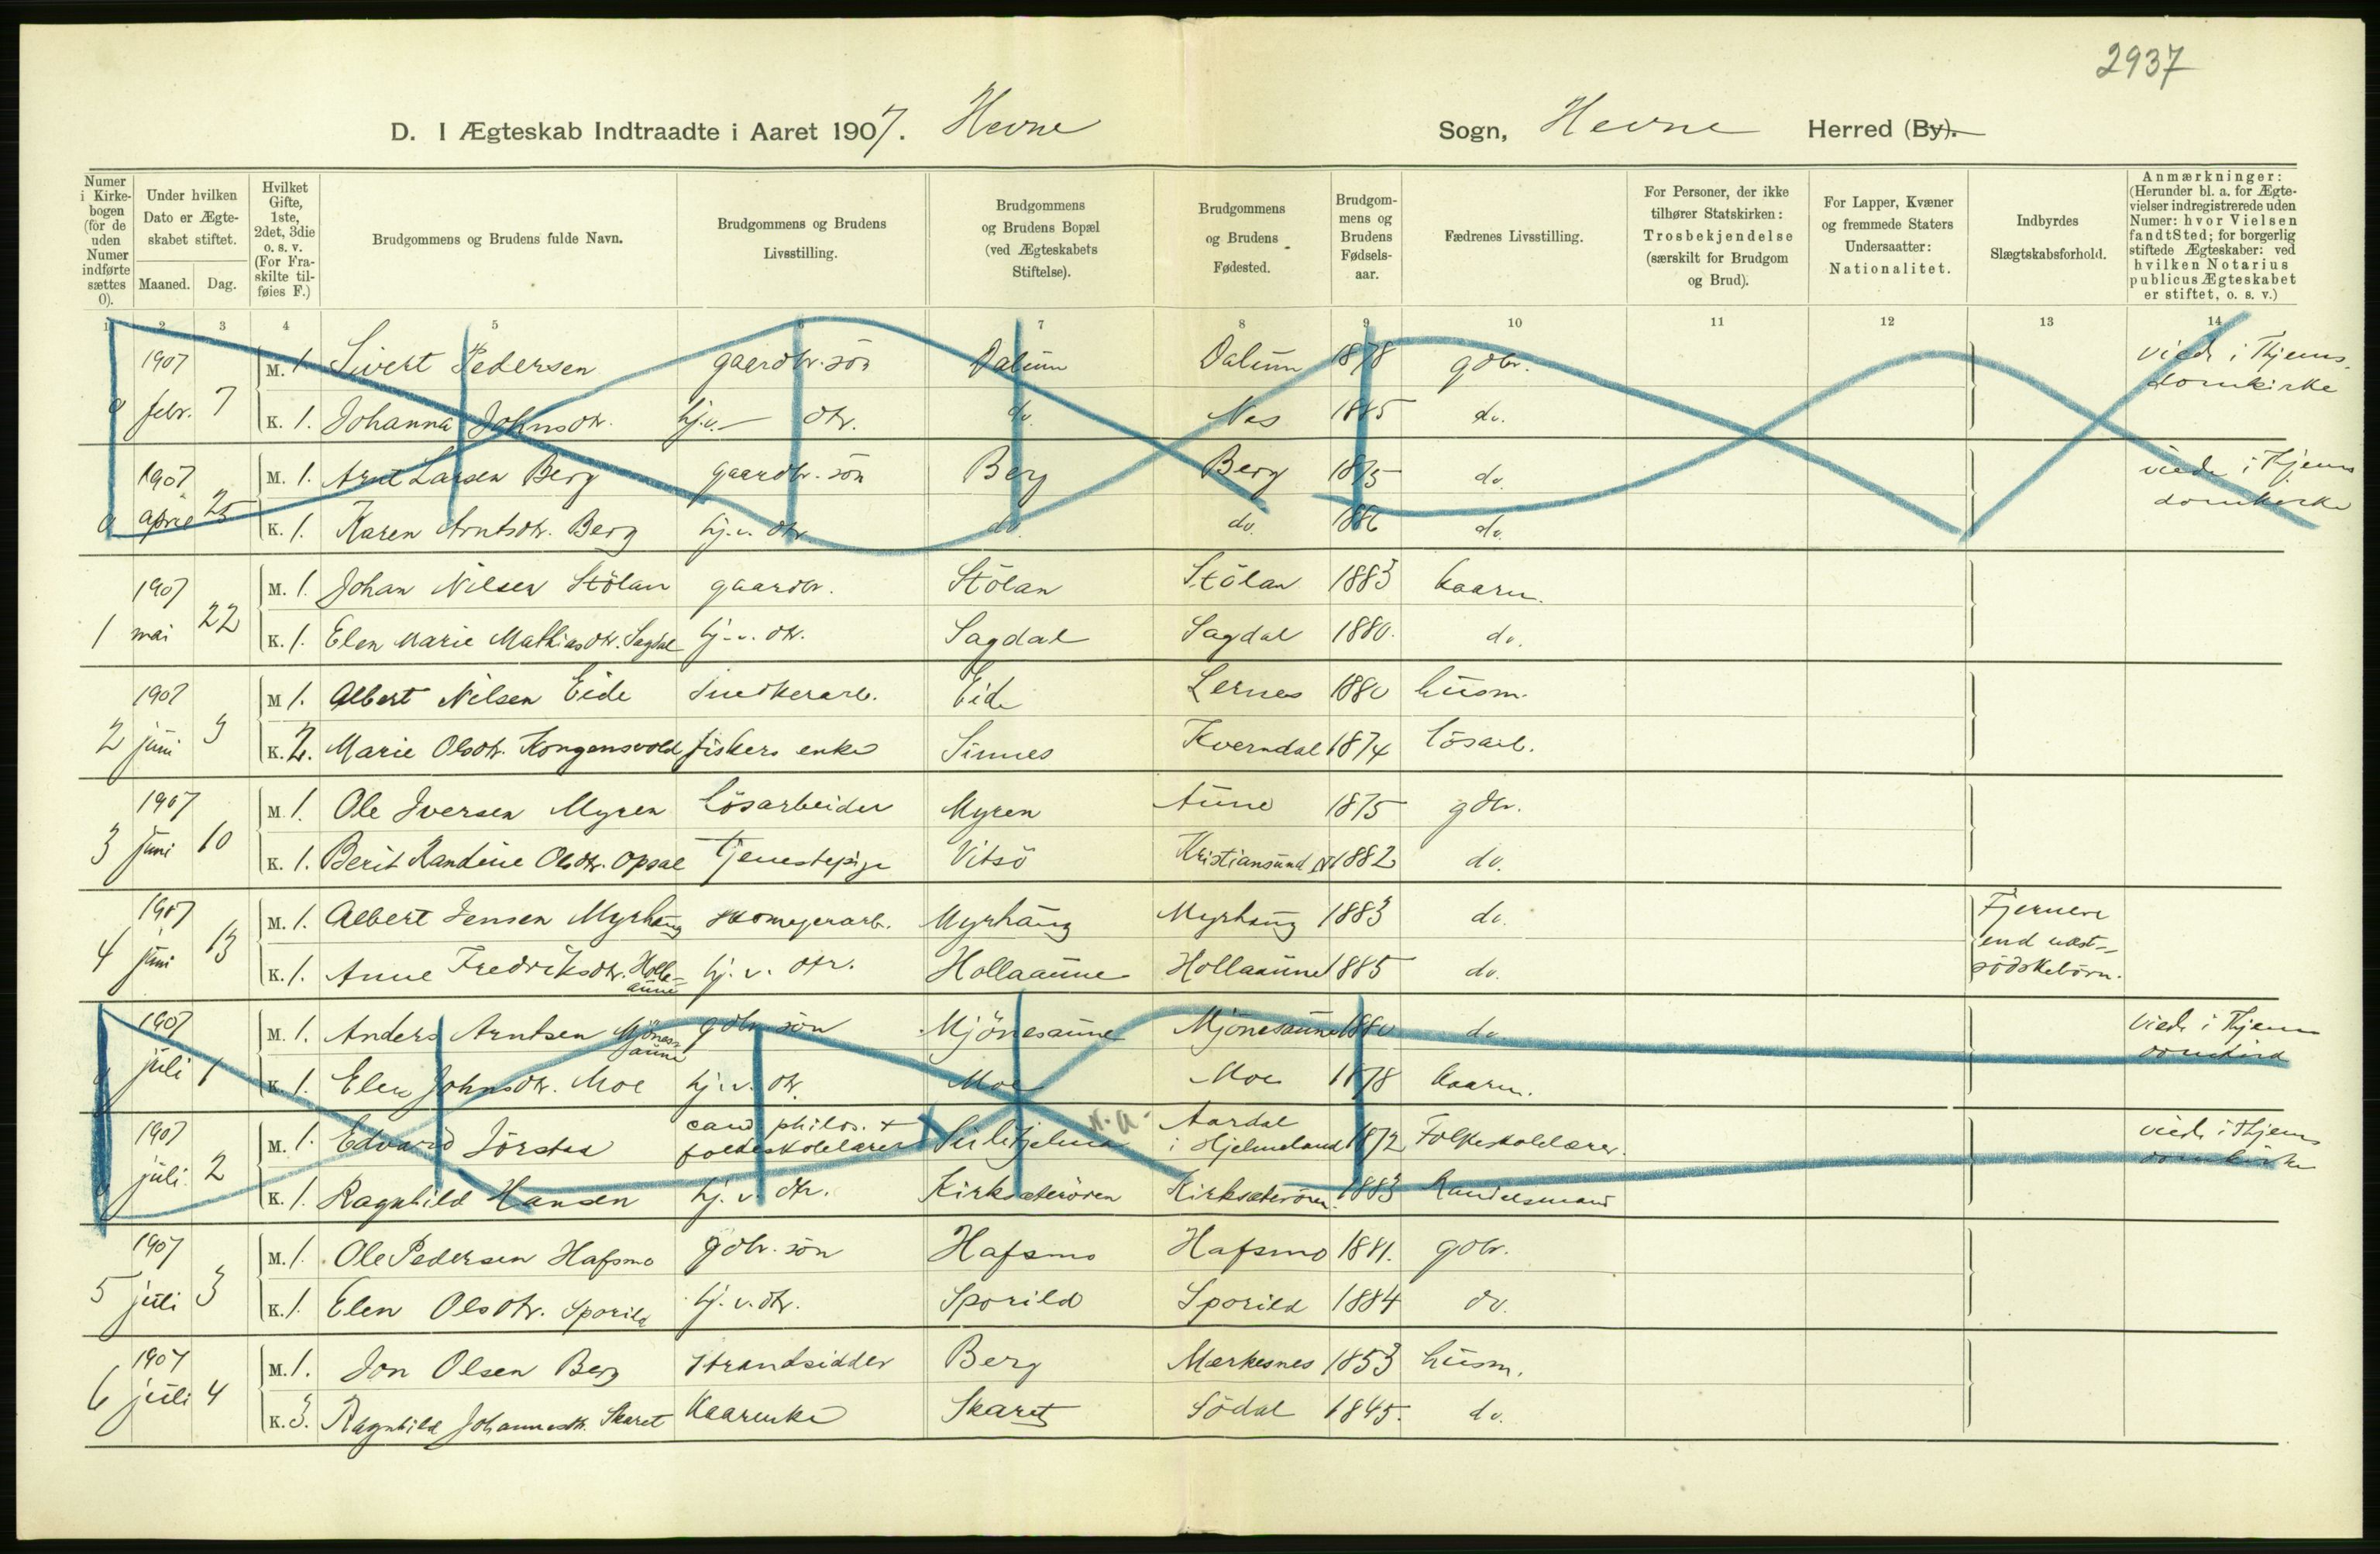 2937
D. I Ægteskab Indtraadte i Aaret 1907. Hevne Sogn, Hevne Herred (By).
Numer i Kirkebogen (for de uden Numer indførte sættes 0).
Under hvilken Dato er Ægteskabet stiftet.
Maaned. Dag.
Hvilket Gifte, 1ste, 2det, 3die o. s. v. (For Fraskilte tilføies F.)
Brudgommens og Brudens fulde Navn.
Brudgommens og Brudens Livsstilling.
Brudgommens og Brudens Bopæl (ved Ægteskabets Stiftelse).
Brudgommens og Brudens Fødested.
Brudgommens og Brudens Fødselsaar.
Fædrenes Livsstilling.
For Personer, der ikke tilhører Statskirken: Trosbekjendelse (særskilt for Brudgom og Brud).
For Lapper, Kvæner og fremmede Staters Undersaatter: Nationalitet.
Indbyrdes Slægtskabsforhold.
Anmærkninger: (Herunder bl. a. for Ægtevielser indregistrerede uden Numer: hvor Vielsen fandt Sted; for borgerlig stiftede Ægteskaber: ved hvilken Notarius publicus Ægteskabet er stiftet, o. s. v.)
1 2 3 4 5 6 7 8 9 10 11 12 13 14
0 1907 febr. 7 M. 1. Sivert Pedersen gaardbr. sön Dalum Dalum 1878 gdbr. viede i Thjems domkirke
K. 1. Johanna Johnsdtr. hj.v. dtr. do. Nes 1885 do.
0 1907 april 25 M. 1. Arnt Larsen Berg gaardbr. sön Berg Berg 1875 do. viede i Thjems domkirke
K. 1. Karen Arntsdtr. Berg hj.v. dtr. do. do. 1886 do.
1 1907 mai 22 M. 1. Johan Nilsen Stölan gaardbr. Stölan Stölan 1883 kaarm.
K. 1. Elen Marie Mathiasdtr. Sagdal hj.v. dtr. Sagdal Sagdal 1880. do.
2 1907 juni 3 M 1. Albert Nilsen Eide snedkerarb. Eide Lernes 1880 husm.
K. 2. Marie Olsdtr. Kongensvold fiskers enke Sinnes Kverndal 1874 lösarb.
3 1907 juni 10 M. 1. Ole Iversen Myren Lösarbeider Myren Aune 1875 gdbr.
K. 1. Berit Randine Olsdtr. Opsal Tjenestepige Vitsö Kristiansund N 1882 do.
4 1907 juni 13 M. 1. Albert Jensen Myrhaug skomagerarb. Myrhaug Myrhaug 1883 do. Fjernere end næstsödskebörn.
K. 1. Anne Fredriksdtr. Hollaaune hj.v. dtr. Hollaaune Hollaaune 1885 do.
0 1907 juli 1 M. 1. Anders Arntsen Mjönesaune gdbr. sön Mjönesaune Mjönesaune 1880 do. Viede i Thjems domkirke
K. 1. Elen Johnsdtr. Moe hj.v. dtr. Moe Moe 1878 kaarm.
0 1907 juli 2 M. 1. Edvard Jörstad cand philos. + folkeskolelærer Sulitjelma N.A. Aardal i Hjelmeland 1872 Folkeskolelærer. viede i Thjems domkirke
K. 1. Ragnhild Hansen hj.v. dtr. Kirksæterören Kirksæterören 1883 Handelsmand
5 1907 juli 3 M. 1. Ole Pedersen Hafsmo gdbr. sön Hafsmo Hafsmo 1881. gdbr.
K. 1. Elen Olsdtr. Sporild hj.v. dtr. Sporild Sporild 1884 do.
6 1907 juli 4 M. 1. Jon Olsen Berg strandsidder Berg Mærkesnes 1853 husm.
K. 3. Ragnhild Johannesdtr. Skaret Kaarenke Skaret Södal 1845. do.